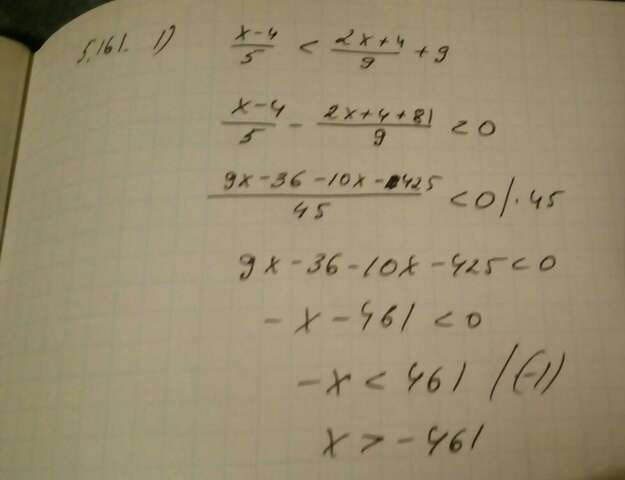 5.161. 1) (x-4)/5 < (2x+4)/9 + 9
(x-4)/5 - (2x+4+81)/9 < 0
(9x-36-10x-425)/45 < 0 /·45
9x-36-10x-425<0
-x-461<0
-x<461 /(-1)
x>-461